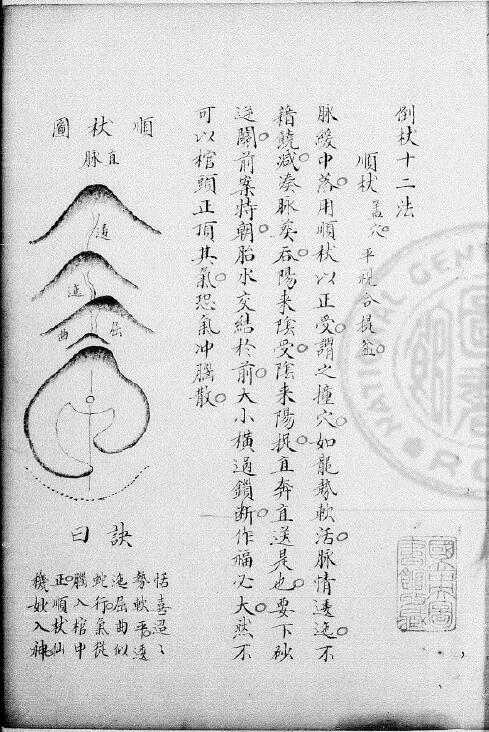 倒杖十二法
順杖 蓋穴。平視合提盆。
脉緩中落。用順杖以正受。謂之撞穴。如龍勢軟活。脉情逶迤。不
藉饒減。湊脉矣。吞陽来陰受。陰来陽提。直奔直送是也。要下砂
逆關前案特朝。胎水交結於前。大小橫過鎖断。作福必大。然不
可以棺頭正頂其氣。恐氣冲腦散。
順杖圖
直脉
逶
迤
屈
曲
訣曰
恬喜迢〻
勢軟平。逶
迤屈曲似
蛇行。氣從
腦入棺中
正。順杖仙
機妙入神。
NATIONAL CENT